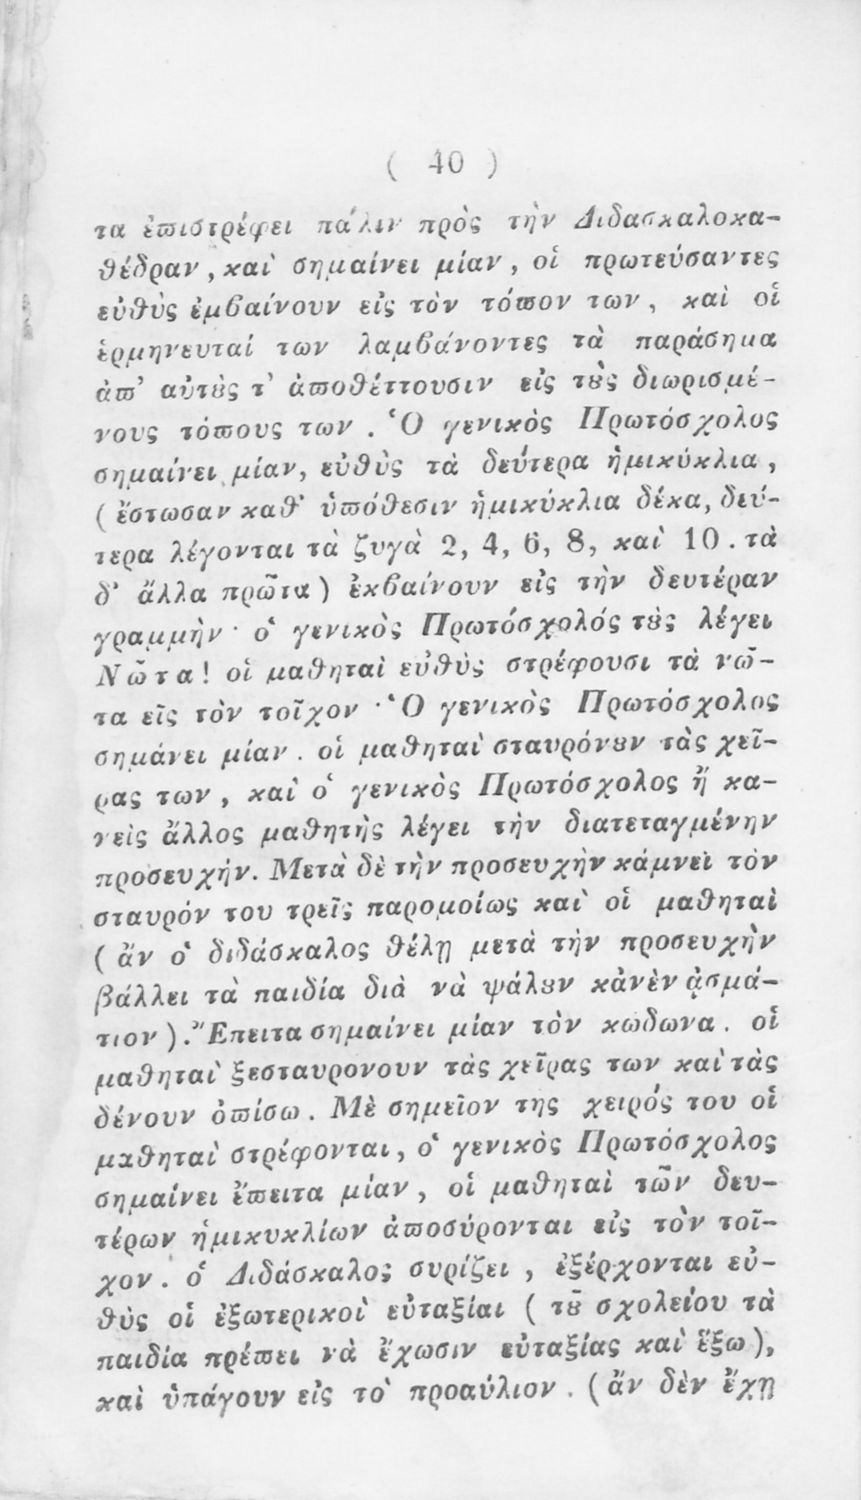 ( 40 )
τα ἐπιστρέφει πάλιν πρὸς τὴν Διδασκαλοκα-
θέδραν, καὶ σημαίνει μίαν, οἱ πρωτεύσαντες
εὐθὺς ἐμβαίνουν εἰς τὸν τόπον των, καὶ οἱ
ἑρμηνευταί των λαμβάνοντες τὰ παράσημα
ἀπ' αὐτȣ̀ς τ' ἀποθέττουσιν εἰς τȣ̀ς διωρισμέ-
νους τόπους των. Ὁ γενικὸς Πρωτόσχολος
σημαίνει μίαν, εὐθὺς τὰ δεύτερα ἡμικύκλια,
(ἔστωσαν καθ' ὑπόθεσιν ἡμικύκλια δέκα, δεύ-
τερα λέγονται τὰ ζυγὰ 2, 4, 6, 8, καὶ 10. τὰ
δ' ἄλλα πρῶτα) ἐκβαίνουν εἰς τὴν δευτέραν
γραμμὴν· ὁ γενικὸς Πρωτόσχολός τȣς λέγει
Νῶτα! οἱ μαθηταὶ εὐθὺς στρέφουσι τὰ νῶ-
τα εἰς τὸν τοῖχον· Ὁ γενικὸς Πρωτόσχολος
σημάνει μίαν. οἱ μαθηταὶ σταυρόνȣν τὰς χεῖ-
ρας των, καὶ ὁ γενικὸς Πρωτόσχολος ἢ κα-
νεὶς ἄλλος μαθητὴς λέγει τὴν διατεταγμένην
προσευχήν. Μετὰ δὲ τὴν προσευχὴν κάμνει τὸν
σταυρόν του τρεῖς παρομοίως καὶ οἱ μαθηταὶ
(ἂν ὁ διδάσκαλος θέλῃ μετὰ τὴν προσευχὴν
βάλλει τὰ παιδία διὰ νὰ ψάλȣν κᾀνὲν ᾀσμά-
τιον). Ἔπειτα σημαίνει μίαν τὸν κώδωνα. οἱ
μαθηταὶ ξεσταυρονουν τὰς χεῖρας των καὶ τὰς
δένουν ὀπίσω. Μὲ σημεῖον της χειρός του οἱ
μαθηταὶ στρέφονται, ὁ γενικὸς Πρωτόσχολος
σημαίνει ἔπειτα μίαν, οἱ μαθηταὶ τῶν δευ-
τέρων ἡμικυκλίων ἀποσύρονται εἰς τὸν τοῖ-
χον. ὁ Διδάσκαλος συρίζει, ἐξέρχονται εὐ-
θὺς οἱ ἐξωτερικοὶ εὐταξίαι (τȣ͂ σχολείου τὰ
παιδία πρέπει νὰ ἔχωσιν εὐταξίας καὶ ἔξω),
καὶ ὑπάγουν εἰς τὸ προαύλιον. (ἂν δὲν ἔχῃ